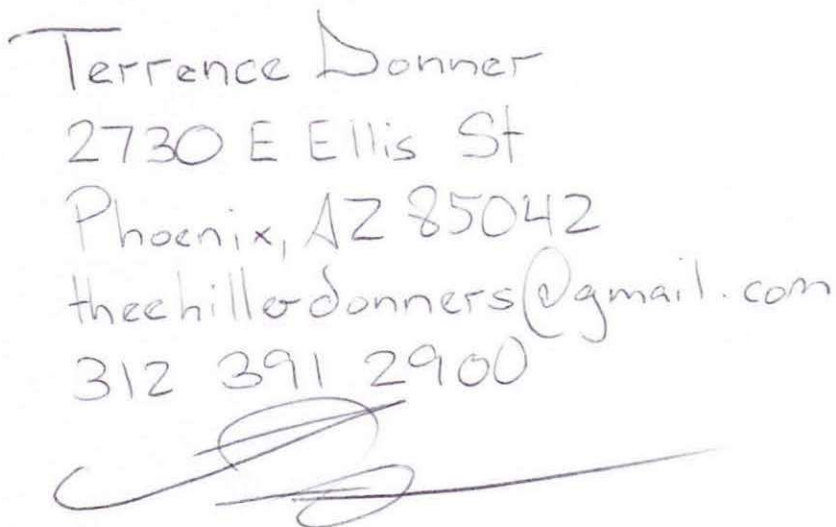 Terrence Donner
2730 E Ellis St
Phoenix, AZ 85042
theehillerdonners@gmail.com
312 391 2900